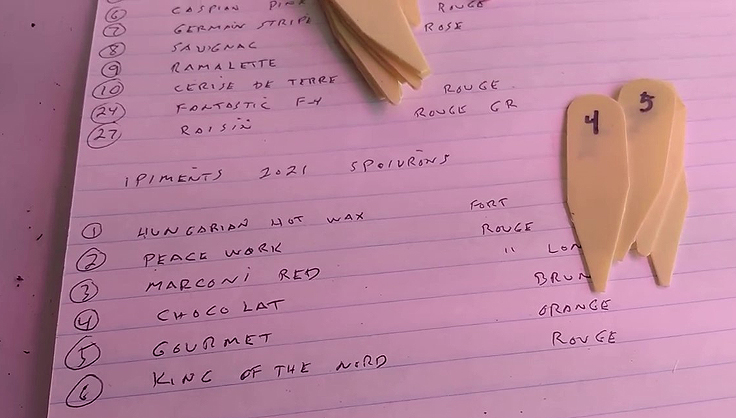 6 CASPIAN PINK ROUGE
7 GERMAIN STRIPE ROSE
8 SAVIGNAC
9 RAMALETTE
10 CERISE DE TERRE
24 FANTASTIC F-4 ROUGE
27 RAISIN ROUGE GR
1PIMENTS 2021 5POIVRONS
1 HUNGARIAN HOT WAX FORT
2 PEACE WORK ROUGE
3 MARCONI RED " LON
4 CHOCOLAT BRUN
5 GOURMET ORANGE
6 KING OF THE NORD ROUGE
4
5